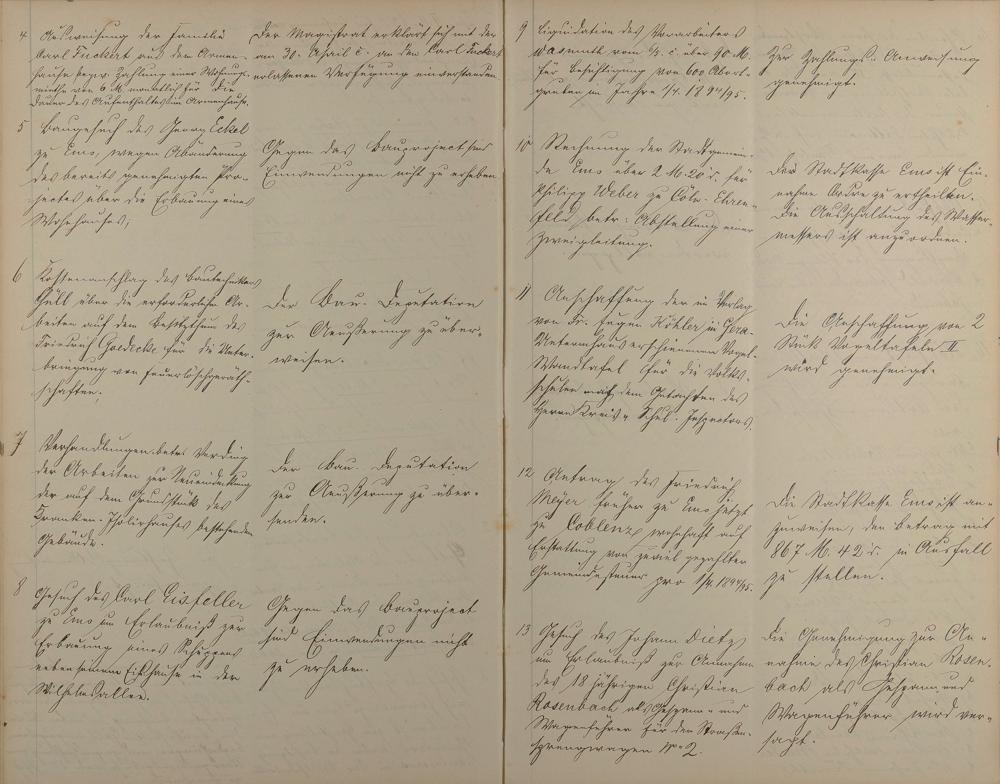 4 Ausweisung der Familie
Carl Fuckert aus dem Armen-
hause bezw. Zahlung einer Wohnungs-
miethe von 6 M. monatlich für die
Dauer des Aufenthaltes im Armenhause.
Der Magistrat erklärt sich mit der
am 30. April c. an den Carl Fuckert
erlassenen Verfügung einverstanden
5 Baugesuch des Georg Eckel
zu Ems, wegen Abänderung
des bereits genehmigten Pro-
jectes über die Erbauung eines
Wohnhauses;
Gegen das Bauproject sind
Einwendungen nicht zu erheben
6 Kostenanschlag des Bautechnikers
Güll über die erforderlichen Ar-
beiten auf dem Besitzthum des
Friedrich Goedecke für die Unter-
bringung von Feuerlöschgeräth-
schaften;
Der Bau-Deputation
zur Aeußerung zu über-
weisen.
7 Verhandlungen betr. Verding
der Arbeiten zur Neueindeckung
der auf dem Grundstück des
Kranken-Isolirhauses bestehenden
Gebäude.
Der Bau-Deputation
zur Aeußerung zu über-
senden.
8 Gesuch des Carl Eisfeller
zu Ems um Erlaubniß zur
Erbauung eines Schuppens
neben seinem Eishause in der
Wilhelmsallee.
Gegen das Bauproject
sind Einwendungen nicht
zu erheben.
9 Liquidation des Vorarbeiters
Wasmuth vom c. über 90 M.
für Besichtigung von 600 Abort-
gruben im Jahre 1/4. 1894/95.
Zur Zahlungs-Anweisung
genehmigt.
10 Rechnung der Stadtgemein-
de Ems über 2 M. 20 d. für
Philipp Weber zu Cöln-Ehren-
feld betr: Abstellung einer
Zweigleitung.
Der Stadtkasse Ems ist Ein-
nahme Ordre zu ertheilen.
Die Ausschaltung des Wasser-
messers ist anzuordnen.
11 Anschaffung der im Verlag
von Fr. Eugen Köhler in Gera-
Untermhaus erschienenen Vogel-
Wandtafel für die Volks-
schulen nach dem Gutachten des
Herrn Kreis-Schul-Inspectors.
Die Anschaffung von 2
Stück Vogeltafeln II
wird genehmigt.
12 Antrag des Friedrich
Meyer früher zu Ems jetzt
zu Coblenz wohnhaft auf
Erstattung von zuviel gezahlter
Gemeindesteuer pro 1/4 1894/95.
Die Stadtkasse Ems ist an-
zuweisen, den Betrag mit
867 M. 42 d. in Ausfall
zu stellen.
13 Gesuch des Johann Dietz
um Erlaubniß zur Annahme
des 18 jährigen Christian
Rosenbach als Gespann- und
Wagenführer für den Straßen-
sprengwagen No 2.
Die Genehmigung zur An-
nahme des Christian Rosen-
bach als Gespann und
Wagenführer wird ver-
sagt.